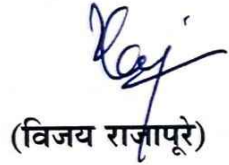 (विजय राजापूरे)